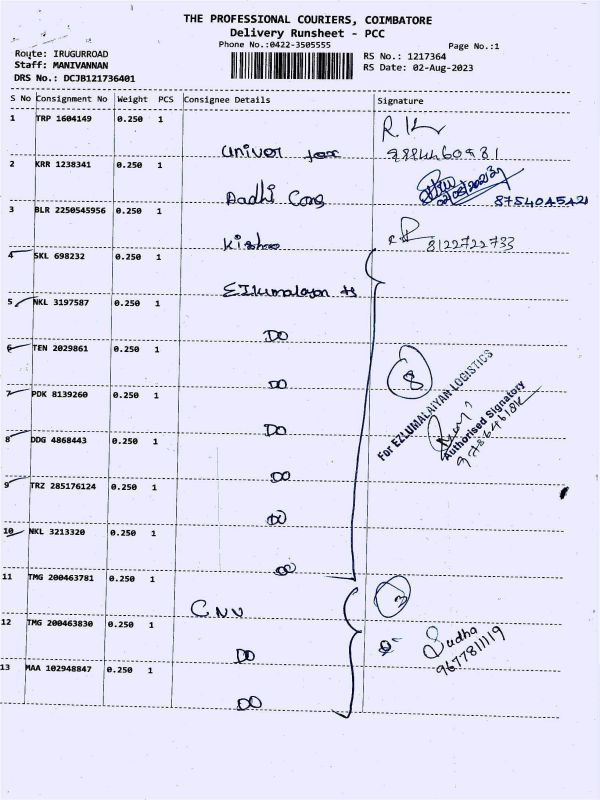 THE PROFESSIONAL COURIERS, COIMBATORE
Delivery Runsheet - PCC
Phone No.:0422-3505555
Page No.:1
Route: IRUGURROAD
Staff: MANIVANNAN
DRS No.: DCJB121736401
RS No.: 1217364
RS Date: 02-Aug-2023
S No Consignment No Weight PCS Consignee Details Signature
1 TRP 1604149 0.250 1
2 KRR 1238341 0.250 1
Aadhi Cons
8754045421
3 BLR 2250545956 0.250 1
8122722733
4 SKL 698232 0.250 1
5 NKL 3197587 0.250 1
DO
6 TEN 2029861 0.250 1
DO
8
7 PDK 8139260 0.250 1
DO
For EZLUMALAIYAN LOGISTICS
Authorised Signatory
8 DDG 4868443 0.250 1
DO
9 TRZ 285176124 0.250 1
DO
10 NKL 3213320 0.250 1
DO
11 TMG 200463781 0.250 1
CNN
3
12 TMG 200463830 0.250 1
DO
Sudha
9677811119
13 MAA 102948847 0.250 1
DO